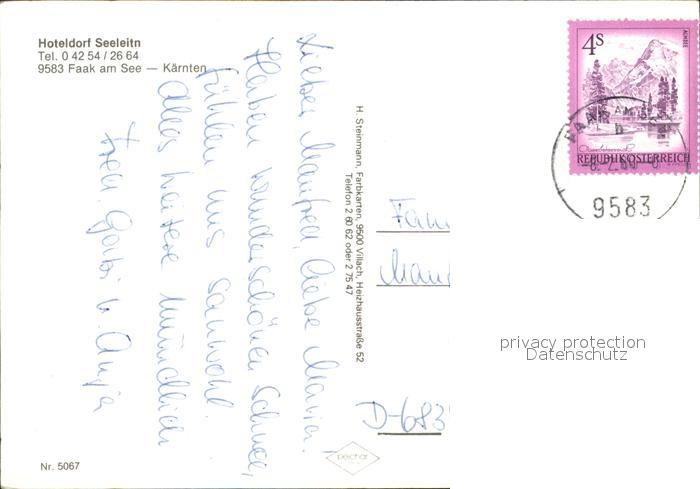 Hoteldorf Seeleitn
Tel. 0 42 54 / 26 64
9583 Faak am See — Kärnten
Lieber Manfred, liebe Maria!
Haben wunderschönen Schnee,
fühlen uns sauwohl.
Alles weitere mündlich
Gabi u. Anja
H. Steinmann, Farbkarten, 9500 Villach, Heizhausstraße 52
Telefon 2 60 62 oder 2 75 47
4S
ALMSEE
Oberösterreich
REPUBLIK ÖSTERREICH
FAAK AM
b
9583
Fam
Man
privacy protection
Datenschutz
D-683
pechar
Nr. 5067